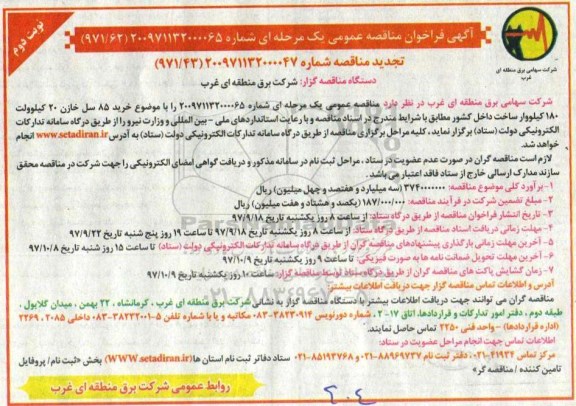 نوبت دوم
آگهی فراخوان مناقصه عمومی یک مرحله ای شماره ۲۰۰۹۷۱۱۳۲۰۰۰۰۶۵ (۹۷۱/۶۲)
تجدید مناقصه شماره ۲۰۰۹۷۱۱۳۲۰۰۰۰۴۷ (۹۷۱/۴۳)
دستگاه مناقصه گزار: شرکت برق منطقه ای غرب
شرکت سهامی برق منطقه ای
غرب
شرکت سهامی برق منطقه ای غرب در نظر دارد مناقصه عمومی یک مرحله ای شماره ۲۰۰۹۷۱۱۳۲۰۰۰۰۶۵ را با موضوع خرید ۸۵ سل خازن ۲۰ کیلوولت
۱۸۰ کیلووار ساخت داخل کشور مطابق با شرایط مندرج در اسناد مناقصه و با رعایت استانداردهای ملی - بین المللی و وزارت نیرو را از طریق درگاه سامانه تدارکات
الکترونیکی دولت (ستاد) برگزار نماید، کلیه مراحل برگزاری مناقصه از طریق درگاه سامانه تدارکات الکترونیکی دولت (ستاد) به آدرس www.setadiran.ir انجام
خواهد شد.
لازم است مناقصه گران در صورت عدم عضویت در ستاد، مراحل ثبت نام در سامانه مذکور و دریافت گواهی امضای الکترونیکی را جهت شرکت در مناقصه محقق
سازند مدارک ارسالی خارج از ستاد فاقد اعتبار می باشد.
۱- برآورد کلی موضوع مناقصه: ۳۷۴۰۰۰۰۰۰۰ (سه میلیارد و هفتصد و چهل میلیون) ریال
۲- مبلغ تضمین شرکت در فرآیند مناقصه: ۱۸۷/۰۰۰/۰۰۰ (یکصد و هشتاد و هفت میلیون) ریال
۳- تاریخ انتشار فراخوان مناقصه از طریق درگاه ستاد: از ساعت ۸ روز یکشنبه تاریخ ۹۷/۹/۱۸
۴- مهلت زمانی دریافت اسناد مناقصه از طریق درگاه ستاد: از ساعت ۸ روز یکشنبه تاریخ ۹۷/۹/۱۸ تا ساعت ۱۹ روز پنج شنبه تاریخ ۹۷/۹/۲۲
۵- آخرین مهلت زمانی بارگذاری پیشنهادهای مناقصه گران از طریق درگاه سامانه تدارکات الکترونیکی دولت (ستاد) تا ساعت ۱۵ روز شنبه تاریخ ۹۷/۱۰/۸
۶- آخرین مهلت تحویل ضمانت نامه ها به صورت فیزیکی: تا ساعت ۹ روز یکشنبه تاریخ ۹۷/۱۰/۹
۷- زمان گشایش پاکت های مناقصه گران از طریق درگاه ستاد توسط مناقصه گزار: ساعت ۱۰ روز یکشنبه تاریخ ۹۷/۱۰/۹
آدرس و اطلاعات تماس مناقصه گزار جهت دریافت اطلاعات بیشتر:
مناقصه گران می توانند جهت دریافت اطلاعات بیشتر با دستگاه مناقصه گزار به نشانی شرکت برق منطقه ای غرب، کرمانشاه، ۲۲ بهمن، میدان گلایول،
طبقه دوم، دفتر امور تدارکات و قراردادها، اتاق ۱۷-۲، شماره دورنویس ۳۸۲۳۰۹۱۴-۰۸۳ مکاتبه و یا با شماره تلفن ۵-۳۸۲۳۲۰۰۱-۰۸۳ داخلی ۲۰۸۵، ۲۲۶۹
(اداره قراردادها) - واحد فنی ۲۲۵۰ تماس حاصل نمایند.
اطلاعات تماس جهت انجام مراحل عضویت در ستاد:
مرکز تماس ۴۱۹۳۴-۰۲۱، دفتر ثبت نام ۸۸۹۶۹۷۳۷-۰۲۱ و ۸۵۱۹۳۷۶۸-۰۲۱ ستاد دفاتر ثبت نام استان ها (WWW.setadiran.ir) بخش «ثبت نام/ پروفایل
تامین کننده / مناقصه گر»
روابط عمومی شرکت برق منطقه ای غرب